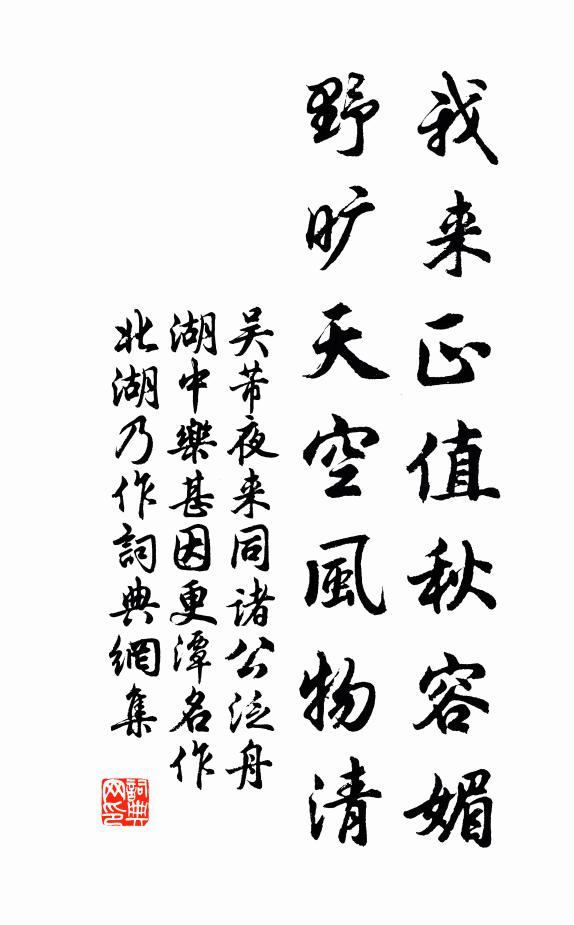 我来正值秋容媚
野旷天空風物清
吴芾夜来同诸公泛舟
湖中樂甚因更潭名作
北湖乃作詞典網集
詞典
网印